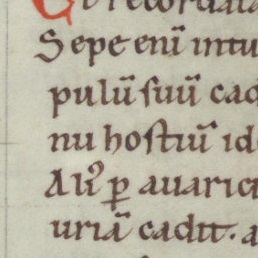 Et recordata
Sepe eni᷑ intu
pulū suū cad
nu hostiū id
Aliꝰ ꝑ auaric
uriā cadit. a